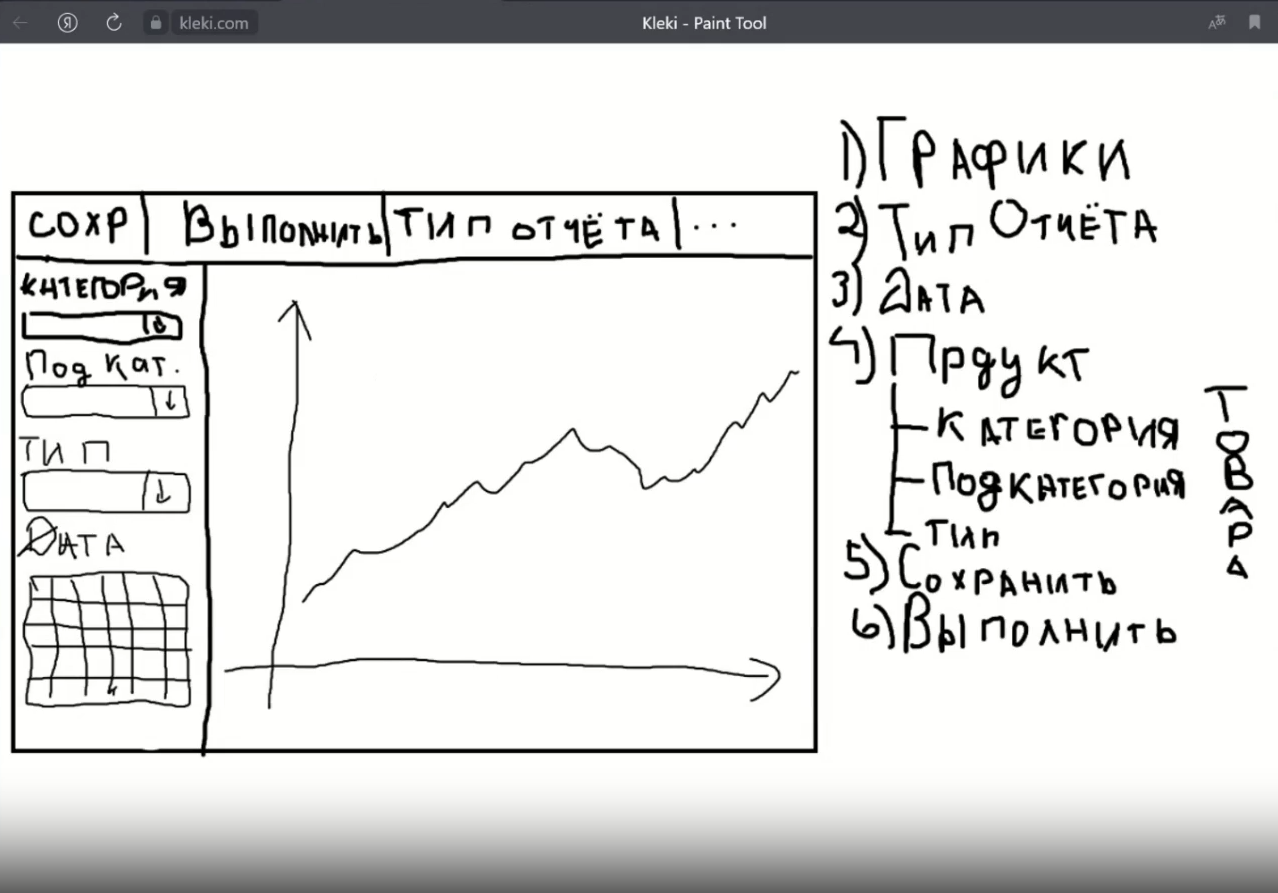 kleki.com
Kleki - Paint Tool
СОХР
ВЫПОЛНИТЬ
ТИП ОТЧЁТА
...
КАТЕГОРИЯ
Под Кат.
ТИП
ДАТА
1) ГРАФИКИ
2) Тип Отчёта
3) Дата
4) Прдукт
КАТЕГОРИЯ
ПодКАТЕГОРИЯ
Тип
ТОВАРА
5) Сохранить
6) Выполнить